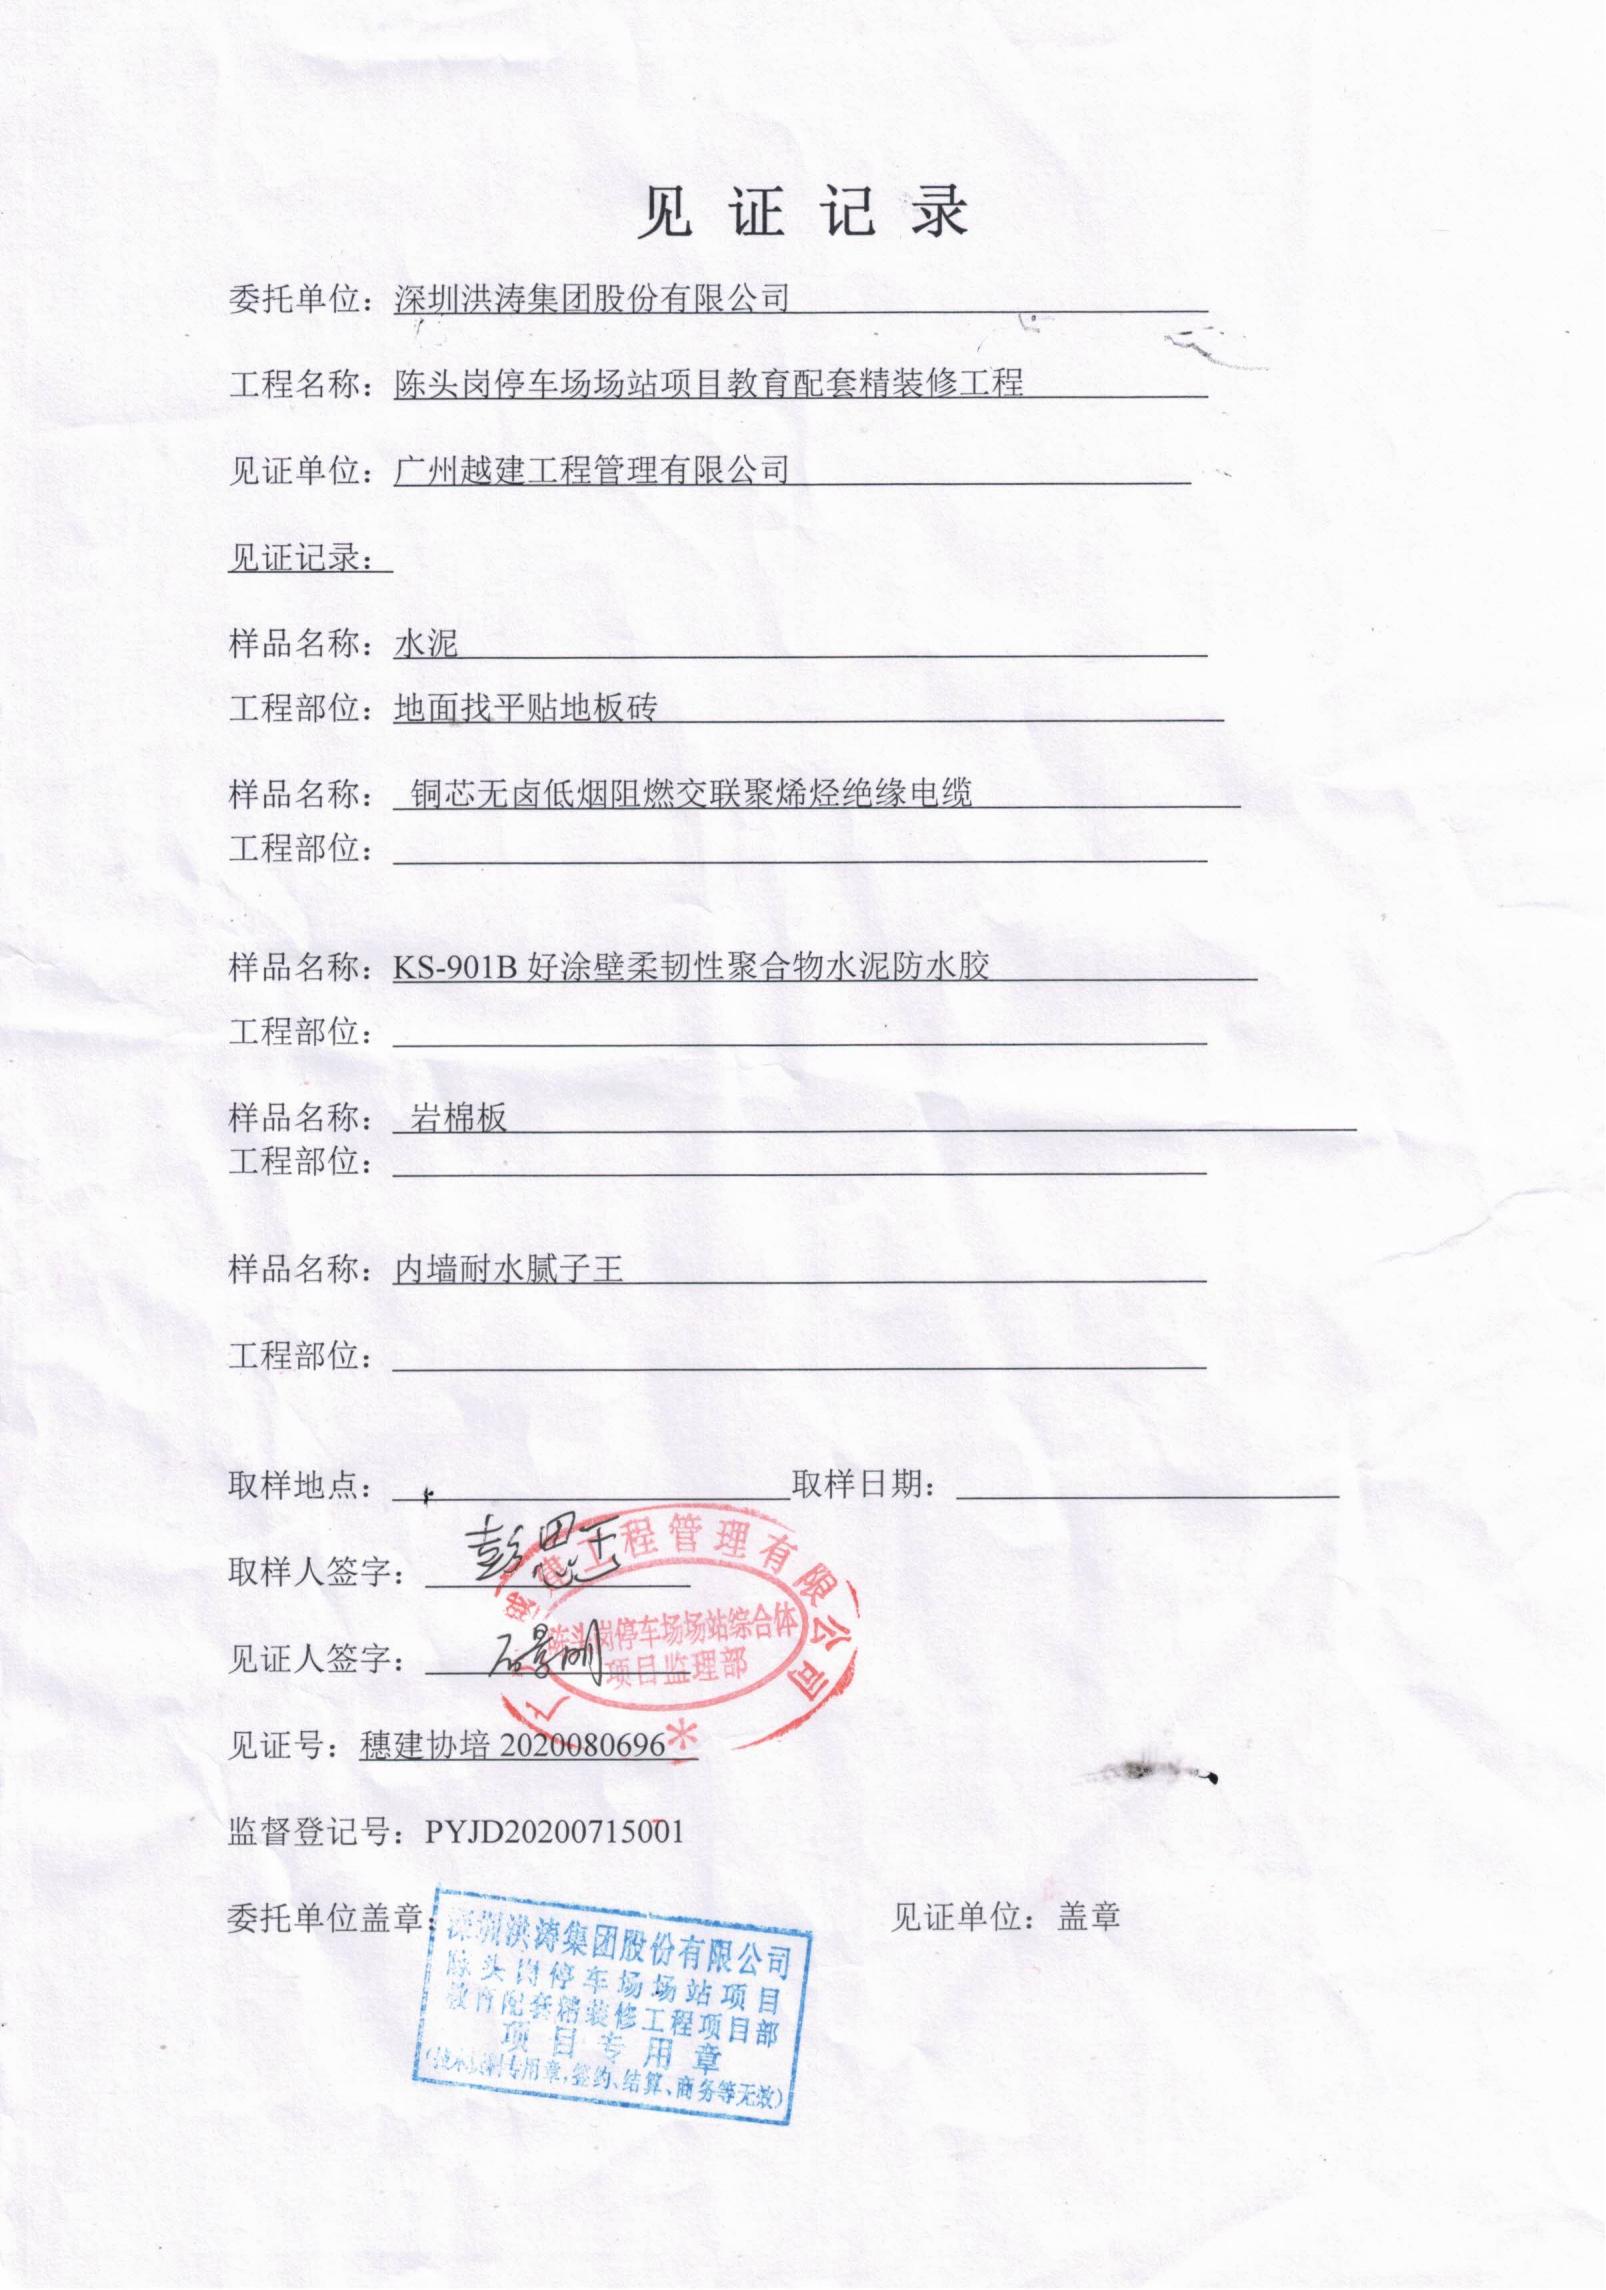 见证记录
委托单位：深圳洪涛集团股份有限公司
工程名称：陈头岗停车场场站项目教育配套精装修工程
见证单位：广州越建工程管理有限公司
见证记录：
样品名称：水泥
工程部位：地面找平贴地板砖
样品名称：铜芯无卤低烟阻燃交联聚烯烃绝缘电缆
工程部位：
样品名称：KS-901B 好涂壁柔韧性聚合物水泥防水胶
工程部位：
样品名称：岩棉板
工程部位：
样品名称：内墙耐水腻子王
工程部位：
取样地点： 取样日期：
取样人签字：彭思
见证人签字：石景刚
广州越建工程管理有限公司
陈头岗停车场场站综合体
项目监理部
见证号：穗建协培 2020080696
监督登记号：PYJD20200715001
委托单位盖章： 见证单位：盖章
深圳洪涛集团股份有限公司
陈头岗停车场场站项目
教育配套精装修工程项目部
项目专用章
(技术资料专用章,签约、结算、商务等无效)